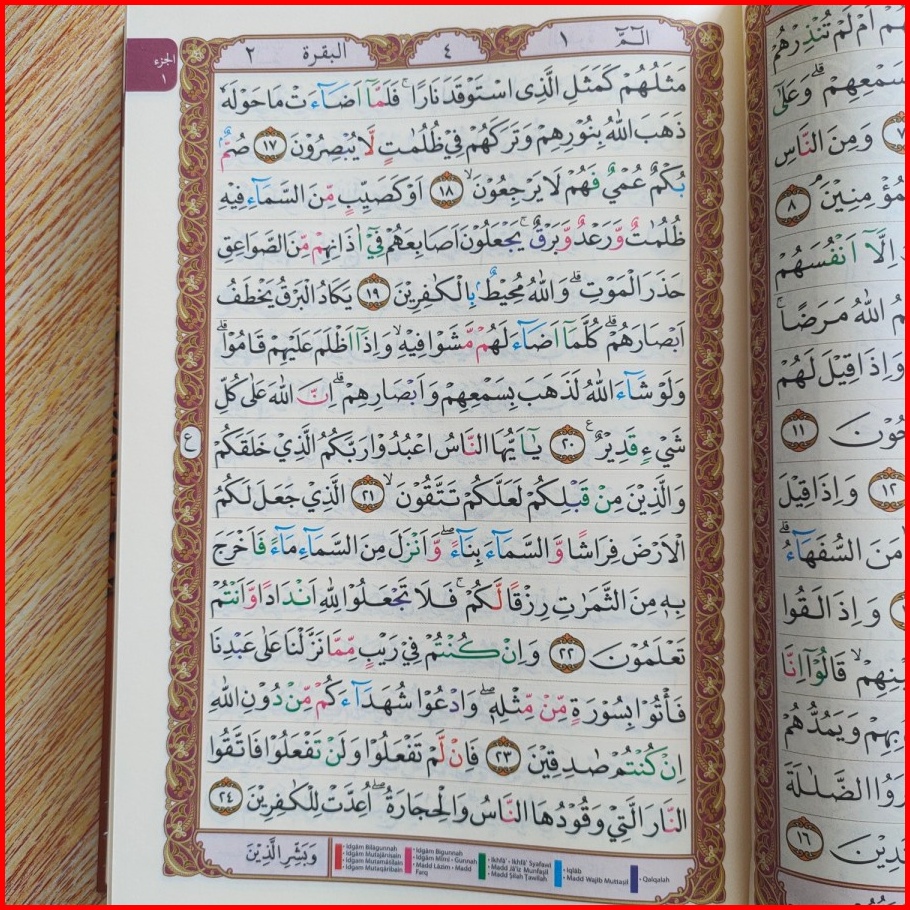 الجزء
١
الٓـمّٓ ١
٤
البقرة ٢
مَثَلُهُمْ كَمَثَلِ الَّذِى اسْتَوْقَدَ نَارًاۚ فَلَمَّآ اَضَاۤءَتْ مَا حَوْلَهٗ
ذَهَبَ اللّٰهُ بِنُوْرِهِمْ وَتَرَكَهُمْ فِيْ ظُلُمٰتٍ لَّا يُبْصِرُوْنَ ١٧ صُمٌّۢ
بُكْمٌ عُمْيٌ فَهُمْ لَا يَرْجِعُوْنَۙ ١٨ اَوْ كَصَيِّبٍ مِّنَ السَّمَاۤءِ فِيْهِ
ظُلُمٰتٌ وَّرَعْدٌ وَّبَرْقٌۚ يَجْعَلُوْنَ اَصَابِعَهُمْ فِيْٓ اٰذَانِهِمْ مِّنَ الصَّوَاعِقِ
حَذَرَ الْمَوْتِۗ وَاللّٰهُ مُحِيْطٌۢ بِالْكٰفِرِيْنَ ١٩ يَكَادُ الْبَرْقُ يَخْطَفُ
اَبْصَارَهُمْۗ كُلَّمَآ اَضَاۤءَ لَهُمْ مَّشَوْا فِيْهِۙ وَاِذَآ اَظْلَمَ عَلَيْهِمْ قَامُوْاۗ
وَلَوْ شَاۤءَ اللّٰهُ لَذَهَبَ بِسَمْعِهِمْ وَاَبْصَارِهِمْۗ اِنَّ اللّٰهَ عَلٰى كُلِّ
شَيْءٍ قَدِيْرٌ ࣖ ٢٠ يٰٓاَيُّهَا النَّاسُ اعْبُدُوْا رَبَّكُمُ الَّذِيْ خَلَقَكُمْ
وَالَّذِيْنَ مِنْ قَبْلِكُمْ لَعَلَّكُمْ تَتَّقُوْنَۙ ٢١ الَّذِيْ جَعَلَ لَكُمُ
الْاَرْضَ فِرَاشًا وَّالسَّمَاۤءَ بِنَاۤءًۖ وَّاَنْزَلَ مِنَ السَّمَاۤءِ مَاۤءً فَاَخْرَجَ
بِهٖ مِنَ الثَّمَرٰتِ رِزْقًا لَّكُمْۚ فَلَا تَجْعَلُوْا لِلّٰهِ اَنْدَادًا وَّاَنْتُمْ
تَعْلَمُوْنَ ٢٢ وَاِنْ كُنْتُمْ فِيْ رَيْبٍ مِّمَّا نَزَّلْنَا عَلٰى عَبْدِنَا
فَأْتُوْا بِسُوْرَةٍ مِّنْ مِّثْلِهٖۖ وَادْعُوْا شُهَدَاۤءَكُمْ مِّنْ دُوْنِ اللّٰهِ
اِنْ كُنْتُمْ صٰدِقِيْنَ ٢٣ فَاِنْ لَّمْ تَفْعَلُوْا وَلَنْ تَفْعَلُوْا فَاتَّقُوا
النَّارَ الَّتِيْ وَقُوْدُهَا النَّاسُ وَالْحِجَارَةُۖ اُعِدَّتْ لِلْكٰفِرِيْنَ ٢٤
ع
وَبَشِّرِ الَّذِيْنَ
• Idgām Bilāgunnah
• Idgām Mutajānisain
• Idgam Mutamāṡilain
• Idgam Mutaqāribain
• Idgām Bigunnah
• Idgām Mīmi - Gunnah
• Madd Lāzim - Madd Farq
• Ikhfā' - Ikhfā' Syafawi
• Madd Jā'iz Munfaṣil
• Madd Ṣilah Ṭawīlah
• Iqlāb
• Madd Wajib Muttaṣil
• Qalqalah
اَمْ لَمْ تُنْذِرْهُمْ
سَمْعِهِمْۗ وَعَلٰٓى
٧ وَمِنَ النَّاسِ
٨
اِلَّآ اَنْفُسَهُمْ
اللّٰهُ مَرَضًاۚ
وَاِذَا قِيْلَ لَهُمْ
١١
١٢ وَاِذَا قِيْلَ
السُّفَهَاۤءُۗ
وَاِذَا لَقُوا
قَالُوْٓا اِنَّا
وَيَمُدُّهُمْ
الضَّلٰلَةَ
١٦